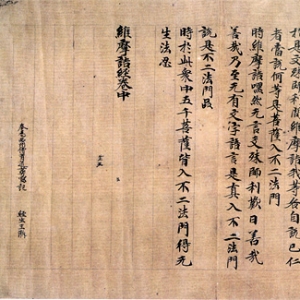 於是文殊師利問維摩詰我等各自說已仁
者當說何等是菩薩入不二法門
時維摩詰嘿然无言文殊師利歎曰善哉
善哉乃至无有文字語言是真入不二法門
說是不二法門品
時於此眾中五千菩薩皆入不二法門得无
生法忍
維摩詰經卷中